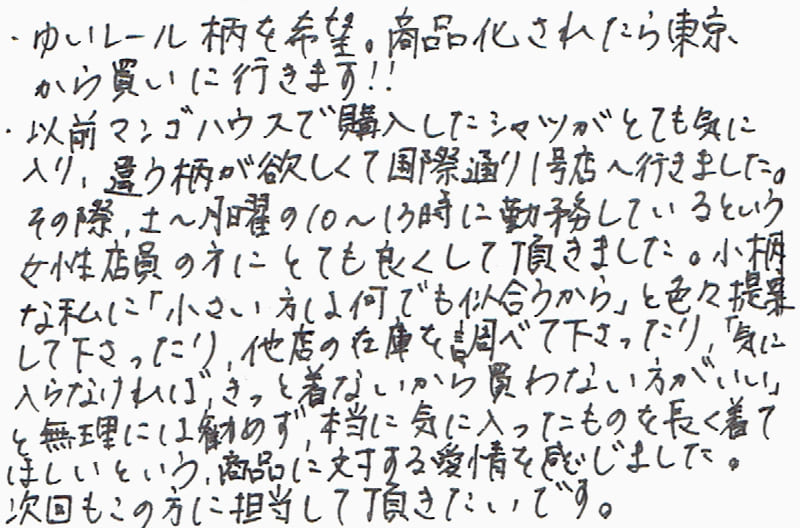 ・ゆいレール柄を希望。商品化されたら東京
から買いに行きます!!
・以前マンゴハウスで購入したシャツがとても気に
入り、違う柄が欲しくて国際通り1号店へ行きました。
その際、土〜月曜の10〜13時に勤務しているという
女性店員の方にとても良くして頂きました。小柄
な私に「小さい方は何でも似合うから」と色々提案
して下さったり、他店の在庫を調べて下さったり、「気に
入らなければ、きっと着ないから買わない方がいい」
と無理には勧めず、本当に気に入ったものを長く着て
ほしいという、商品に対する愛情を感じました。
次回もこの方に担当して頂きたいです。